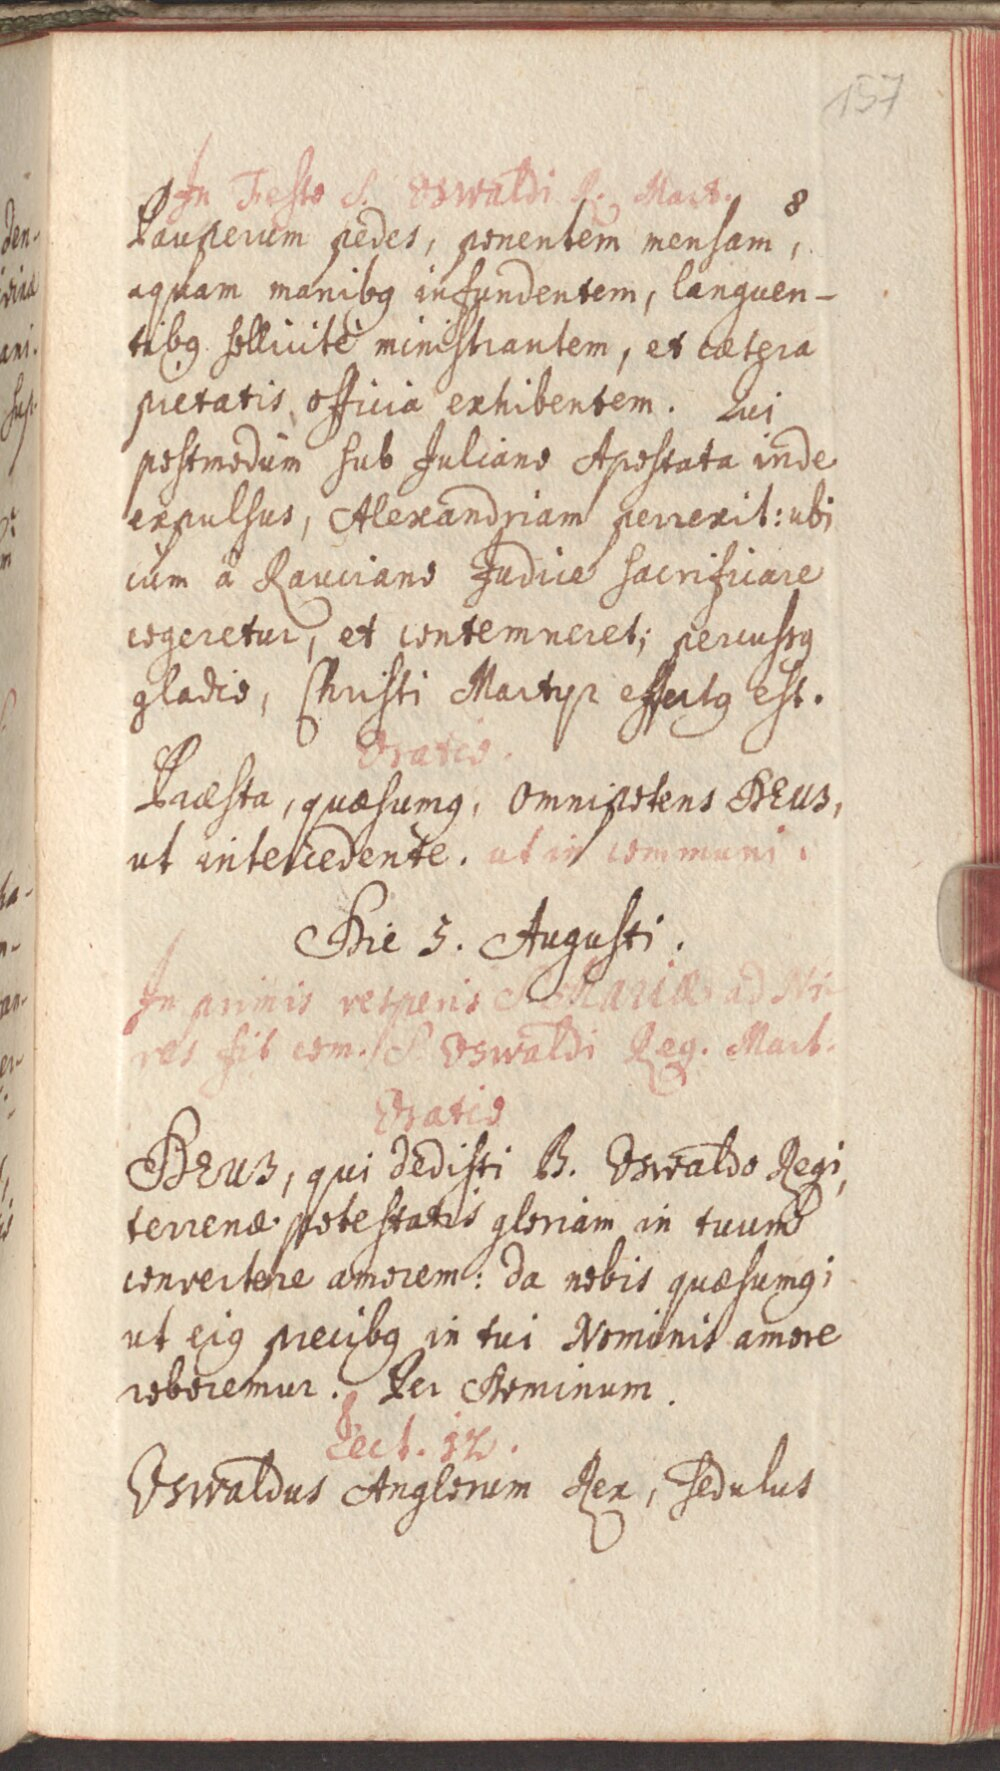 157
In Festo S. Oswaldi R. Mart. 8
Pauperum pedes, ponentem mensam,
aquam manibꝰ infundentem, languen-
tibꝰ sollicitè ministrantem, et cætera
pietatis officia exhibentem. Qui
postmodùm sub Juliano Apostata inde
expulsus, Alexandriam perrexit: ubi
cùm à Rauciano Judice sacrificare
cogeretur, et contemneret; percussꝰ
gladio, Christi Martyr effectꝰ est.
Oratio.
Præsta, quæsumꝰ, omnipotens DEUS,
ut intercedente. ut in communi.
Die 5. Augusti.
In primis vesperis S. MARIÆ ad Ni-
ves fit com. S. Oswaldi Reg. Mart.
Oratio
DEUS, qui dedisti B. Oswaldo Regi,
terrenæ potestatis gloriam in tuum
convertere amorem: da nobis quæsumꝰ;
ut ejꝰ precibꝰ in tui Nominis amore
roboremur. Per Dominum.
Lect. 12.
Oswaldus Anglorum Rex, sedulus